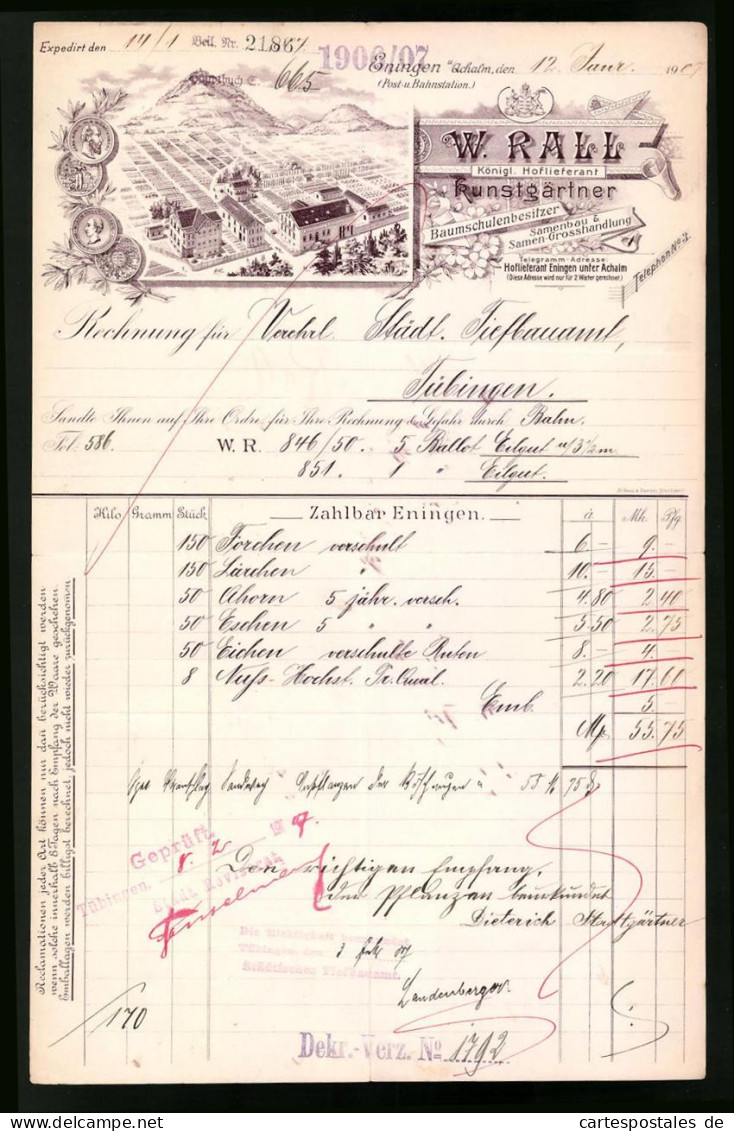 Expedirt den 14/1 Beil. Nr. 21867
1906/07
Hauptbuch E. 665
Eningen u/Achalm, den 12. Janr. 1907
(Post-u. Bahnstation.)
W. RALL
Königl. Hoflieferant
Kunstgärtner
Baumschulenbesitzer
Samenbau &
Samen-Grosshandlung
Telegramm-Adresse:
Hoflieferant Eningen unter Achalm
(Diese Adresse wird nur für 2 Wörter gerechnet.)
Telephon No 3.
Rechnung für Verehrl. Städt. Tiefbauamt,
Tübingen.
Sandte Ihnen auf Ihre Ordre für Ihre Rechnung & Gefahr durch Bahn.
Fol. 586. W. R. 846/50. 5 Ballot Eilgut
851. 1 " Eilgut.
Hilo Gramm Stück Zahlbar Eningen. à Mk. Pfg.
150 Forchen verschult 6.- 9.-
150 Lärchen " 10.- 15.-
50 Ahorn 5 jähr. versch. 4.80 2.40
50 Eschen 5 " " 5.50 2.75
50 Eichen verschulte Ruten 8.- 4.-
8 Nuss-Hochst. Ir. Qual. 2.20 17.60
Emb. 5.-
Mk. 55.75
55 M 75 Pf
Geprüft.
Tübingen, 8. 2. 1907.
Stadt
Den richtigen Empfang,
der Pflanzen beurkundet
Dieterich Stadtgärtner
Die Richtigkeit beurkundet
Tübingen, den 3 Febr 07
Städtisches Tiefbauamt.
Landenberger.
/170
Dekr.-Verz. No 1792
Reclamationen jeder Art können nur dan berücksichtigt werden
wenn solche innerhalb 8 Tagen nach Empfang der Waare geschehen
Emballagen werden billigst berechnet, jedoch nicht wieder zurückgenomen
cartespostales.de